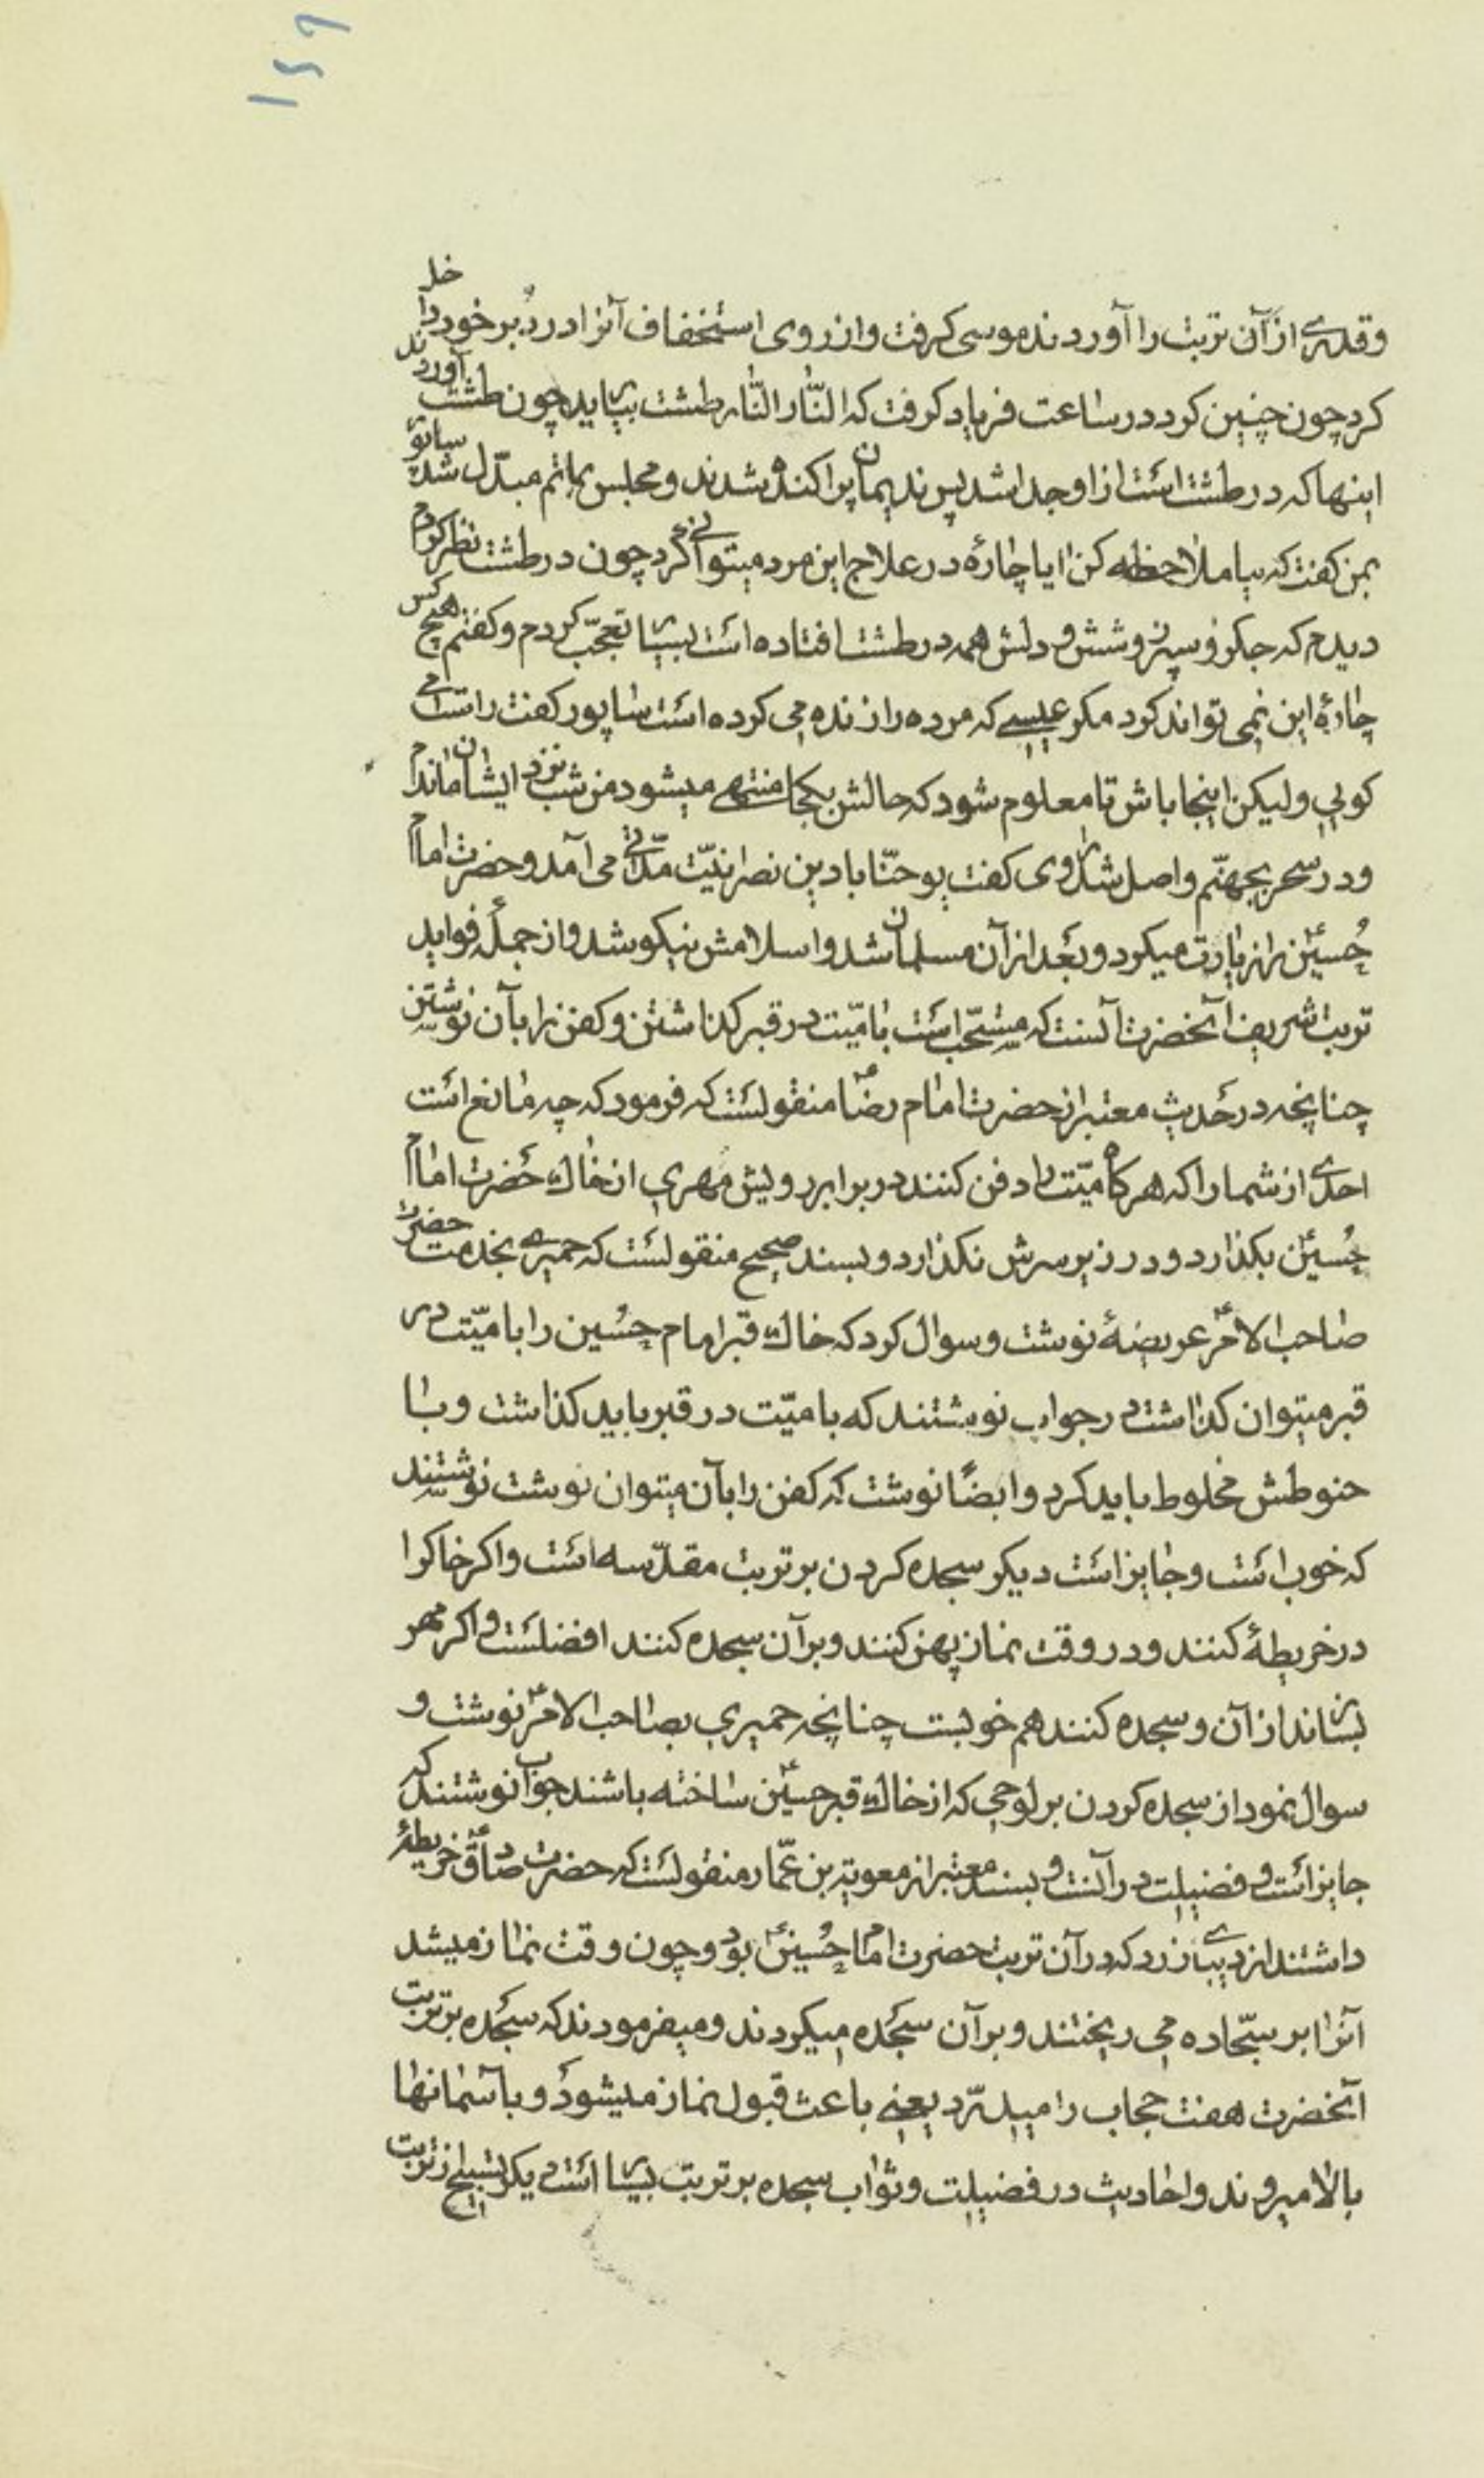 ۱۵۹
وقدری از آن تربت را آوردند موسی کرفت واز روی استخفاف آنرا در دبر خود داخل
کرد چون چنین کرد در ساعت فریاد کرفت که النّار النّار طشت بیاید چون طشت آوردند
اینها که در طشت است از او جدا شد پس ندیمان پراکنده شدند و مجلس بماتم مبدّل شد سابور
بمن کفت که بیا ملاحظه کن ایا چارهٔ در علاج این مرد میتوانی کرد چون در طشت نظر کردم
دیدم که جکر و سپرز و شش و دلش همه در طشت افتاده است بسیار تعجّب کردم و کفتم هیچ کس
چارهٔ این نمی تواند کرد مکر عیسی که مرده را زنده می کرده است شاپور کفت راست می
کویی ولیکن اینجا باش تا معلوم شود که حالش بکجا منتهی میشود من شب نزد ایشان ماندم
ودر سحر بجهنّم واصل شد راوی کفت یوحنّا با دین نصرانیّت مدّتی می آمد و حضرت امام
حُسین را زیارت میکرد و بعد از آن مسلمان شد واسلامش نیکو شد واز جملهٔ فواید
تربت شریف آنحضرت آنست که مستحّب است با میّت در قبر کذاشتن و کفن را بآن نوشتن
چنانچه در حدیث معتبر از حضرت امام رضا منقولست که فرمود که چه مانع است
احدی از شما را که هرکاه میّت را دفن کنند در برابر رویش مهری از خاک حضرت امام
حُسین بکذارد ودر زیر سرش نکذارد و بسند صحیح منقولست که حمیری بخدمت حضرت
صاحب الامر عریضهٔ نوشت وسوال کرد که خاک قبر امام حسُین را با میّت در
قبر میتوان کذاشت در جواب نوشتند که با میّت در قبر باید کذاشت وبا
حنوطش مخلوط باید کرد وایضًا نوشت که کفن را بآن میتوان نوشت نوشتند
که خوب است وجایز است دیکر سجده کردن بر تربت مقدّسه است واکر خاکرا
در خریطهٔ کنند ودر وقت نماز پهن کنند وبر آن سجده کنند افضلست واکر مهر
بسازند از آن وسجده کنند هم خوبست چنانچه حمیری بصاحب الامر نوشت و
سوال نمود از سجده کردن بر لوحی که از خاک قبر حسین ساخته باشند جواب نوشتند که
جایز است و فضیلت در آنست و بسند معتبر از معویة بن عمّار منقولست که حضرت صادق خریطهٔ
داشتند از دیبای زرد که در آن تربت حضرت امام حُسین بود و چون وقت نماز میشد
آنرا بر سجّاده می ریختند وبر آن سجده میکردند ومیفرمودند که سجده بر تربت
آنحضرت هفت حجاب را میدرّد یعنی باعث قبول نماز میشود وبآسمانها
بالا میروند واحادیث در فضیلت وثواب سجده بر تربت بسیار است دیکر تسبیح از تربت